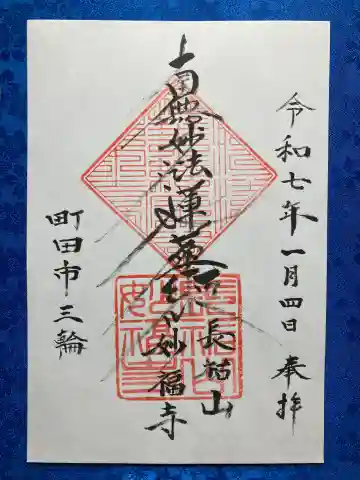 令和七年一月四日 奉拝
南無妙法蓮華経
長祐山
妙福寺
町田市三輪